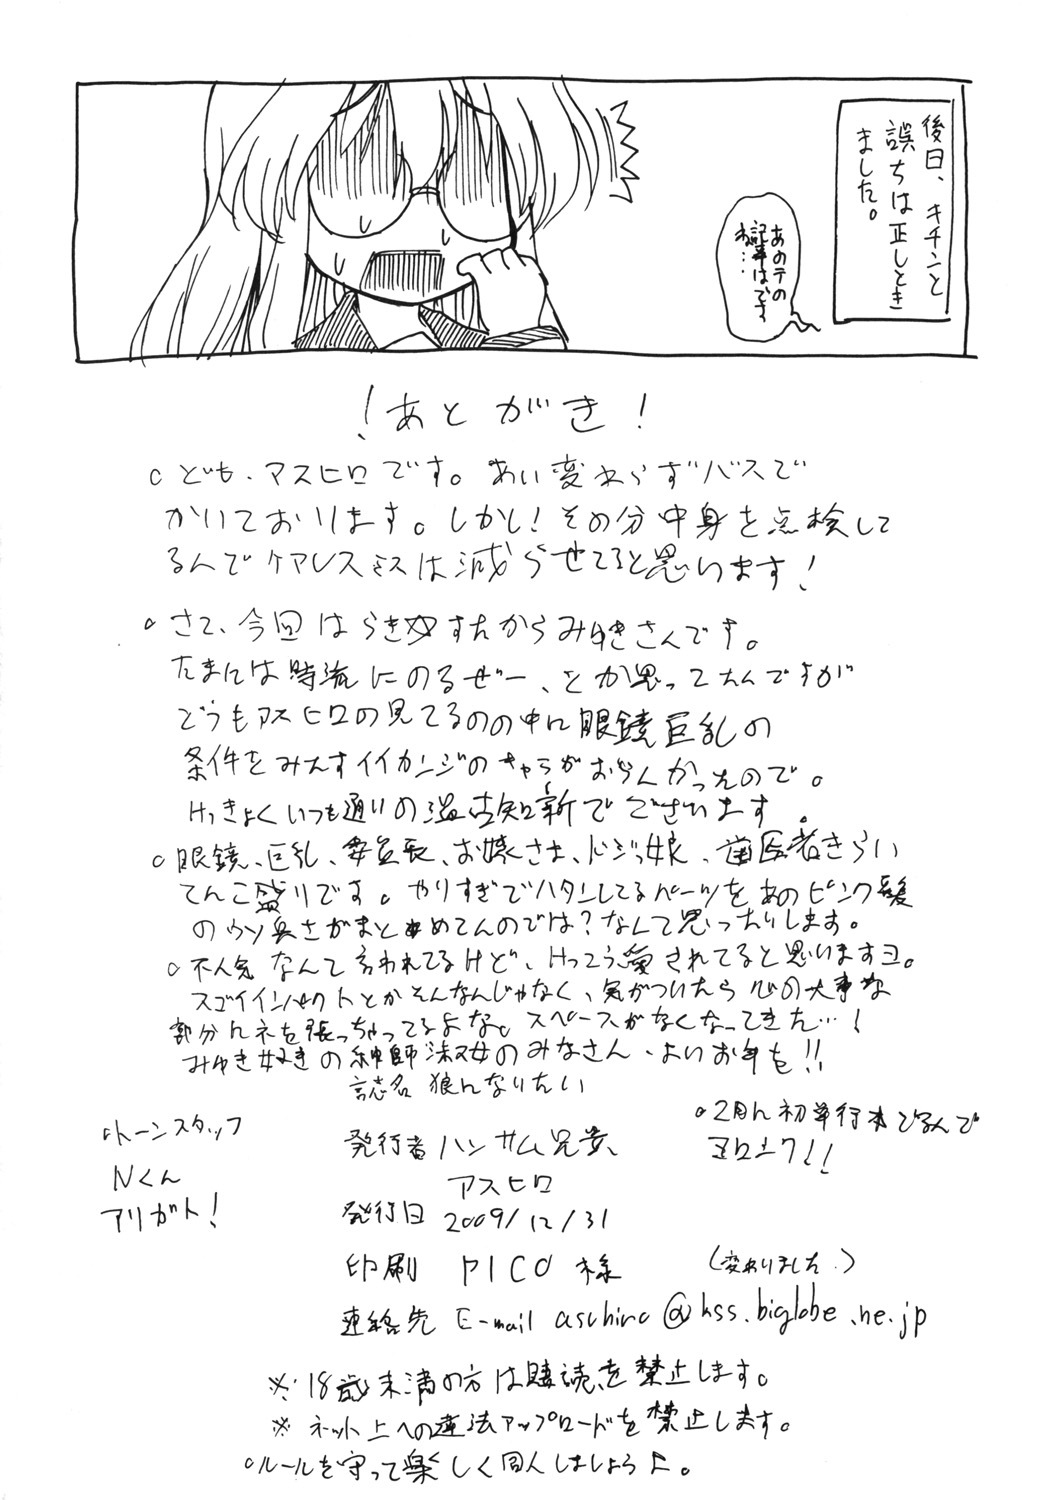 後日、キチンと
誤ちは正しとき
ました。
あのテの
記事はです
ね…
！あとがき！
ども、アスヒロです。あい変わらずバスで
かいております。しかし！その分中身を点検して
るんでケアレスミスは減らせてると思います！
さて、今回はらき☆すたからみゆきさんです。
たまには時流にのるぜー、とか思ってたんですが
どうもアスヒロの見てるのの中に眼鏡巨乳の
条件をみたすイイカンジのキャラがおらんかったので。
けっきょくいつも通りの温古知新でございます。
眼鏡、巨乳、委員長、お嬢さま、ドジっ娘、歯医者きらい
てんこ盛りです。やりすぎでハタンしてるパーツをあのピンク髪
のウソ臭さがまとめてんのでは？なんて思ったりします。
不人気なんて言われてるけど、けっこう愛されてると思いますヨ。
スゴイインパクトとかそんなんじゃなく、気がついたら心の大事な
部分にネを張っちゃってるよな。スペースがなくなってきた…！
みゆき好きの紳師淑女のみなさん、よいお年を！！
誌名 狼になりたい
トーンスタッフ
Nくん
アリガト！
発行者 ハンサム兄貴、
アスヒロ
発行日 2009/12/31
印刷 PICO様
2月に初単行本でるんで
ヨロシク！！
（変わりました。）
連絡先 E-mail asuhiro@kss.biglobe.ne.jp
※18歳未満の方は購読を禁止します。
※ネット上への違法アップロードを禁止します。
ルールを守って楽しく同人しましょうよ。